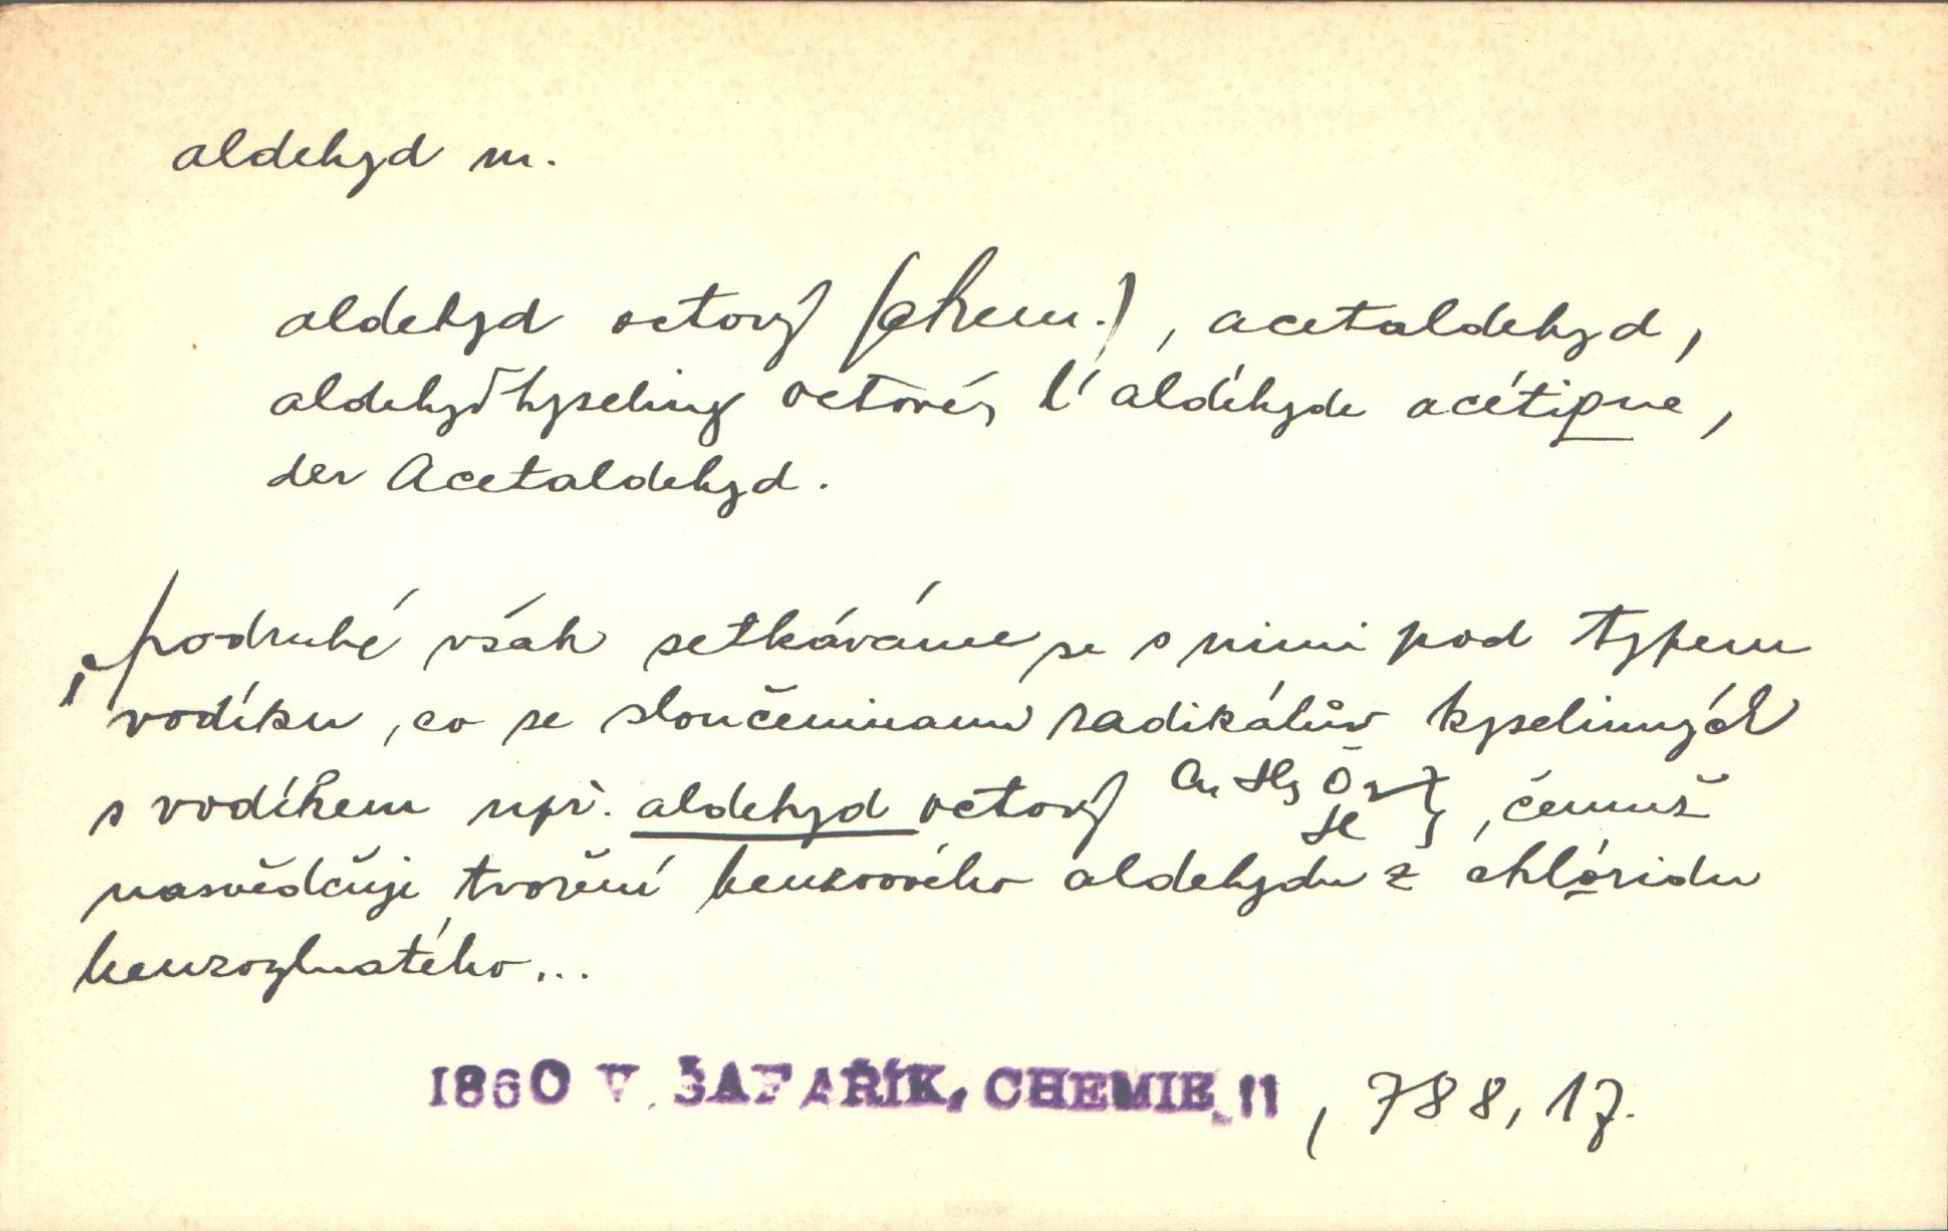 aldehyd m.
aldehyd octový (chem.), acetaldehyd,
aldehyd kyseliny octové, l'aldéhyde acétique,
der Acetaldehyd.
podruhé však setkáváme se s nimi pod typem
vodíku, co se sloučeninami radikálův kyselinných
s vodíkem np̌. aldehyd octový C₄ H₃ Ō₂ H }, čemuž
nasvědčuje tvoření benzového aldehydu z chlóridu
benzoylnatého...
1860 V. ŠAFAŘÍK, CHEMIE II, 788, 17.